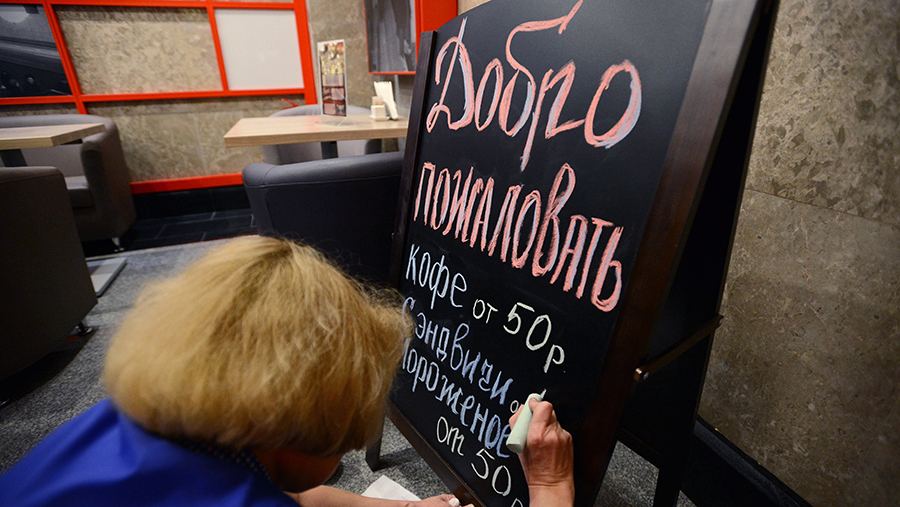 Добро
пожаловать
кофе от 50р
Сэндвичи
Мороженое
от 50